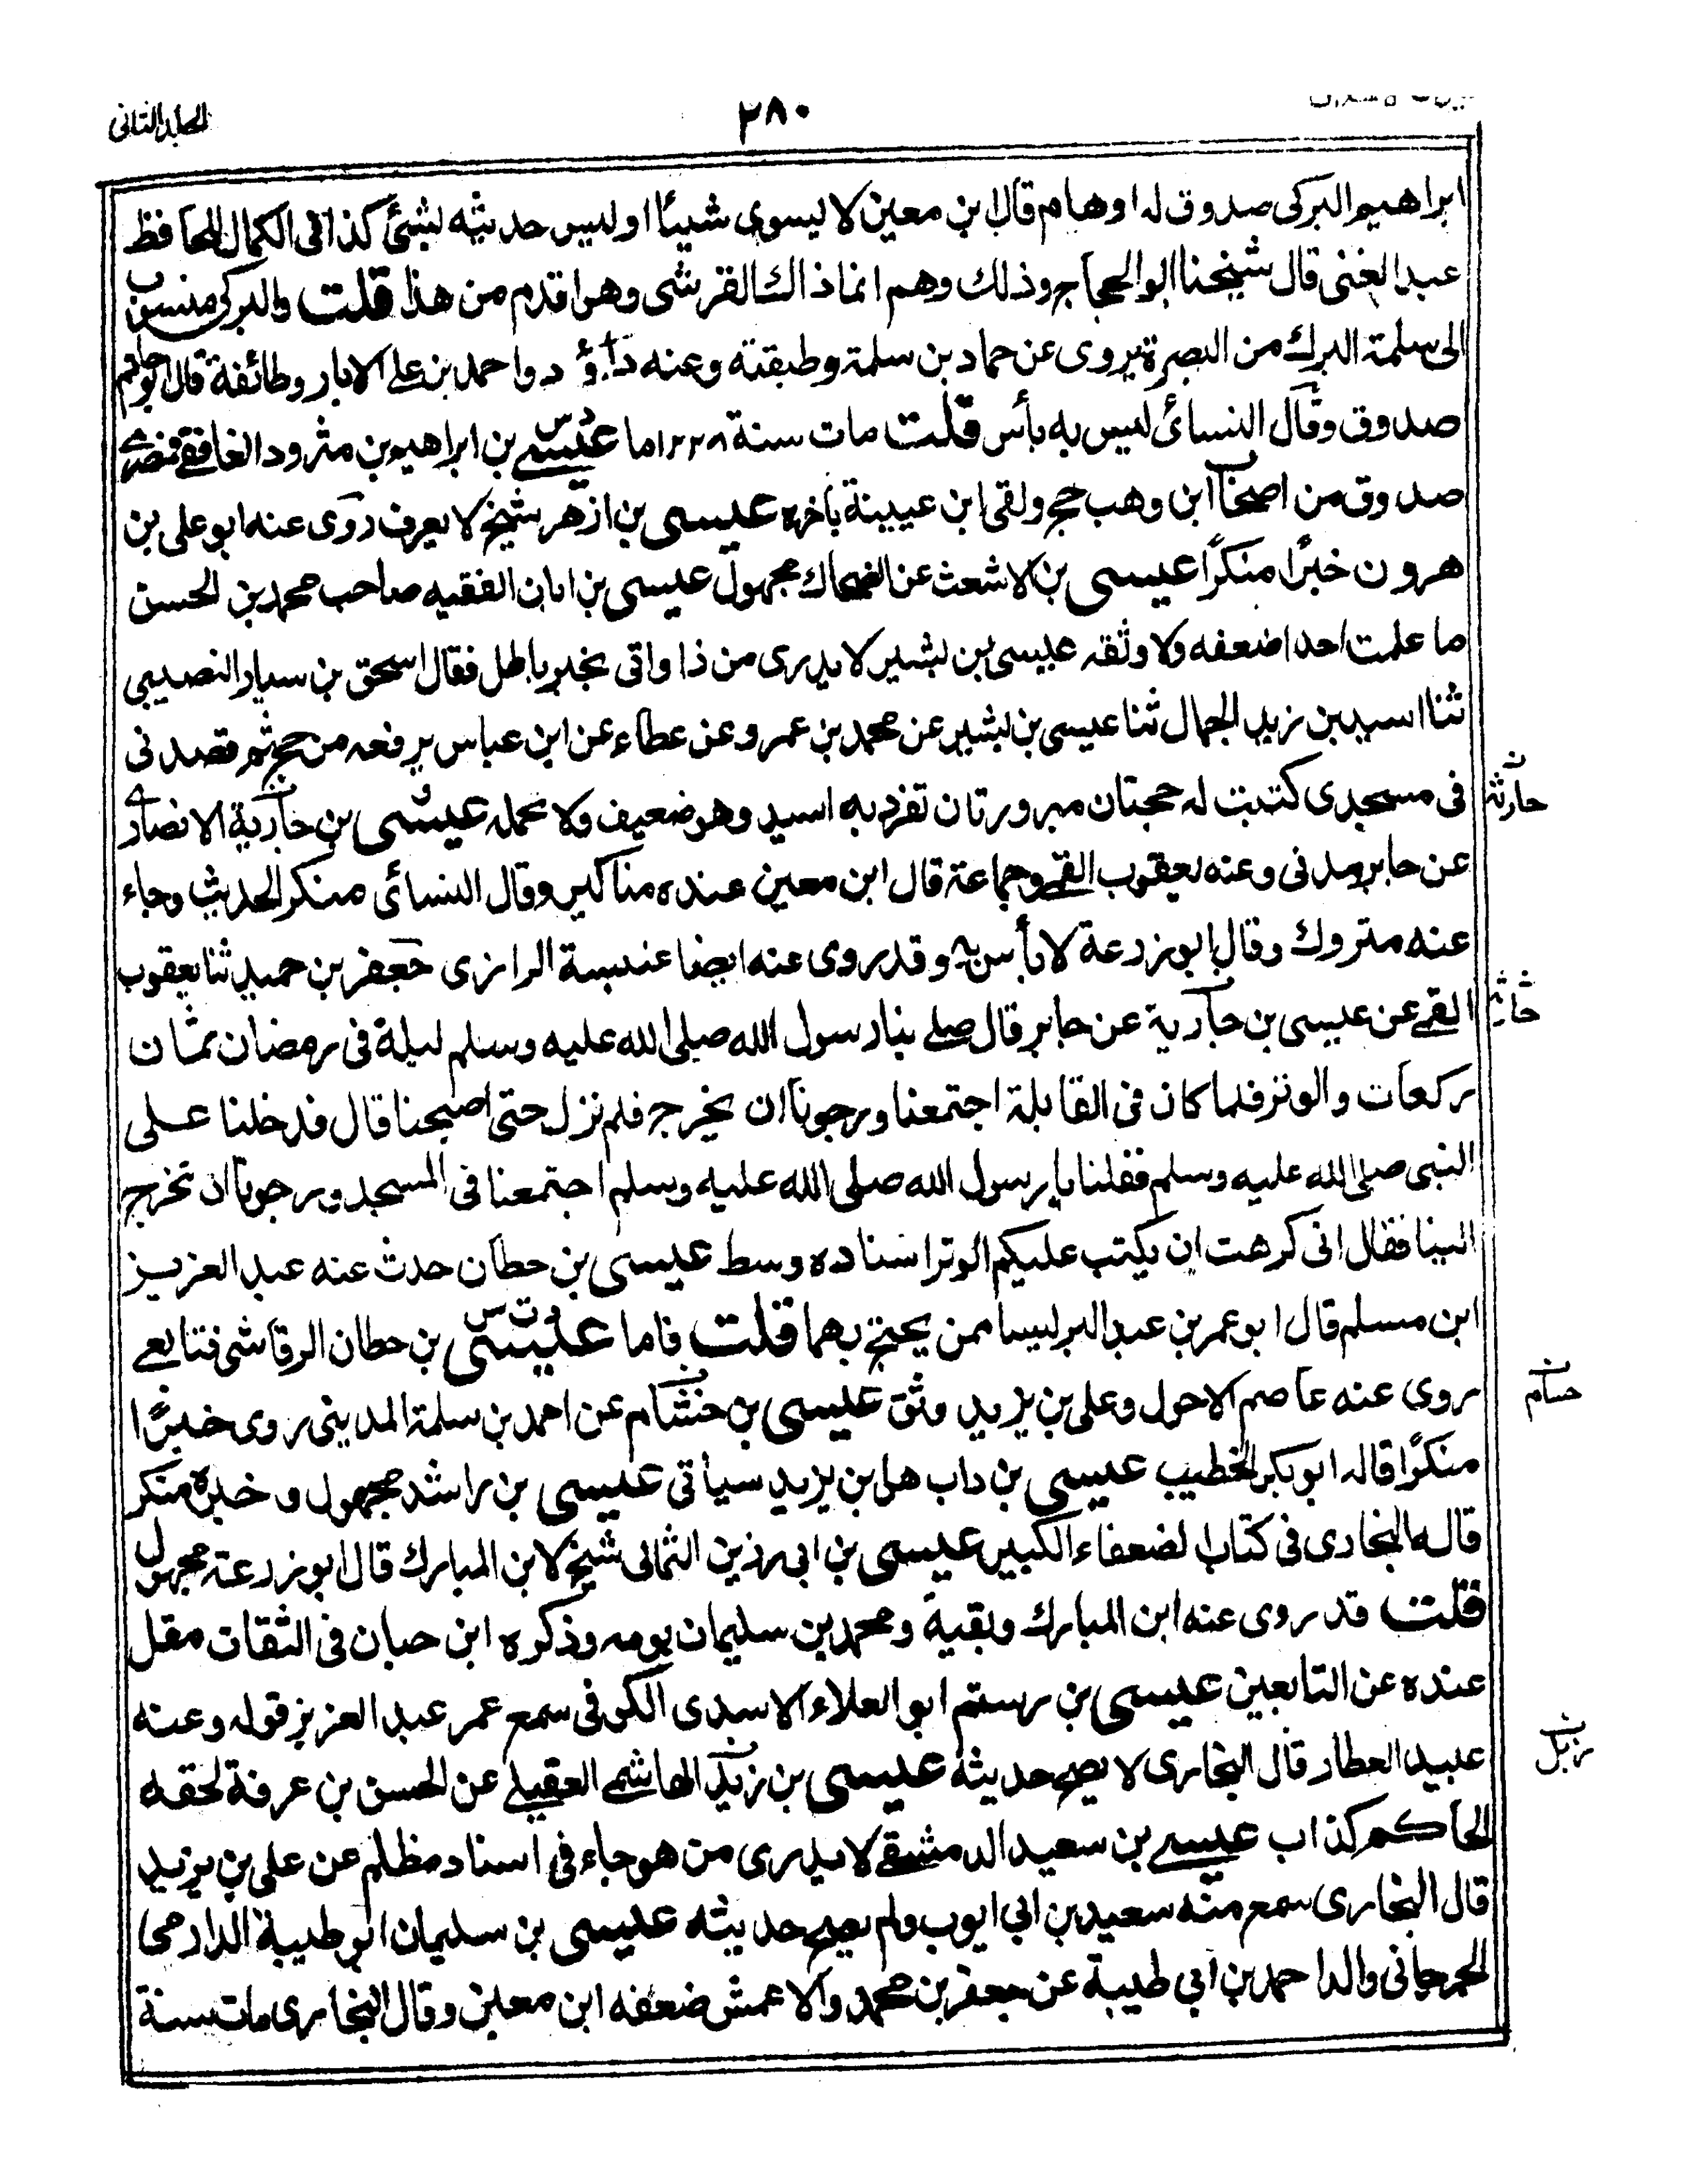 المجلد الثانى
٢٨٠
ابراهيم البركى صدوق له اوهام قال ابن معين لا يسوى شيئا او ليس حديثه بشئ كذا فى الكمال للحافظ
عبد الغنى قال شيخنا ابو الحجاج وذلك وهم انما ذاك القرشى وهو اقدم من هذا قلت والبركى منسوب
الى سلمة البرك من البصرة يروى عن حماد بن سلمة وطبقته وعنه داؤد واحمد بن على الابار وطائفة قال ابو حاتم
صدوق وقال النسائى ليس به بأس قلت مات سنة ٢٢٨ اما عيسے بن ابراهيم بن مثرود الغافقے فمصرے
صدوق من اصحاب ابن وهب حج ولقى ابن عيينة بآخره عيسى بن ازهر شيخ لا يعرف روى عنه ابو على بن
هرون خبرًا منكرًا عيسى بن الاشعث عن الضحاك مجهول عيسى بن ابان الفقيه صاحب محمد بن الحسن
ما علمت احدا ضعفه ولا وثقه عيسى بن بشير لا يدرى من ذا واتى بخبر باطل فقال اسحق بن سيار النصيبى
ثنا اسيد بن زيد الجمال ثنا عيسى بن بشير عن محمد بن عمرو عن عطاء عن ابن عباس يرفعه من حج ثم قصدنى
فى مسجدى كتبت له حجتان مبرورتان تفرد به اسيد وهو ضعيف ولا يحمله عيسى بن جارية الانصارے
حارثة
عن جابر مدنى وعنه يعقوب القمے وجماعة قال ابن معين عنده مناكير وقال النسائى منكر الحديث وجاء
عنه متروك وقال ابو زرعة لا بأس به وقد روى عنه ايضا عنبسة الرازى جعفر بن حميد ثنا يعقوب
القمے عن عيسى بن جارية عن جابر قال صلے بنا رسول الله صلى الله عليه وسلم ليلة فى رمضان ثمان
ركعات والوتر فلما كان فى القابلة اجتمعنا ورجونا ان يخرج فلم نزل حتى اصبحنا قال فدخلنا على
النبى صلى الله عليه وسلم فقلنا يا رسول الله صلى الله عليه وسلم اجتمعنا فى المسجد ورجونا ان تخرج
الينا فقال انى كرهت ان يكتب عليكم الوتر اسناده وسط عيسى بن حطان حدث عنه عبد العزيز
ابن مسلم قال ابو عمر بن عبد البر ليسا ممن يحتج بهما قلت فاما عيسى بن حطان الرقاشى فتابعے
روى عنه عاصم الاحول وعلى بن يزيد وثق عيسى بن خشام عن احمد بن سلمة المدينى روى خبرًا
حسام
منكرًا قاله ابو بكر الخطيب عيسى بن داب هل بن يزيد سياتى عيسى بن راشد مجهول وخبره منكر
قاله البخارى فى كتاب الضعفاء الكبير عيسى بن ابى رزين الثمالى شيخ لابن المبارك قال ابو زرعة مجهول
قلت قد روى عنه ابن المبارك وبقية ومحمد بن سليمان بومه وذكره ابن حبان فى الثقات مقل
عنده عن التابعين عيسى بن رستم ابو العلاء الاسدى الكوفى سمع عمر عبد العزيز قوله وعنه
عبيد العطار قال البخارى لا يصح حديثه عيسى بن زيد الهاشمے العقيلے عن الحسن بن عرفة لحقه
الحاكم كذاب عيسے بن سعيد الدمشقے لا يدرى من هو جاء فى اسناد مظلم عن على بن يزيد
قال البخارى سمع منه سعيد بن ابى ايوب ولم يصح حديثه عيسى بن سليمان ابو طيبة الدارمى
الجرجانى والد احمد بن ابي طيبة عن جعفر بن محمد والاعمش ضعفه ابن معين وقال البخارى مات سنة